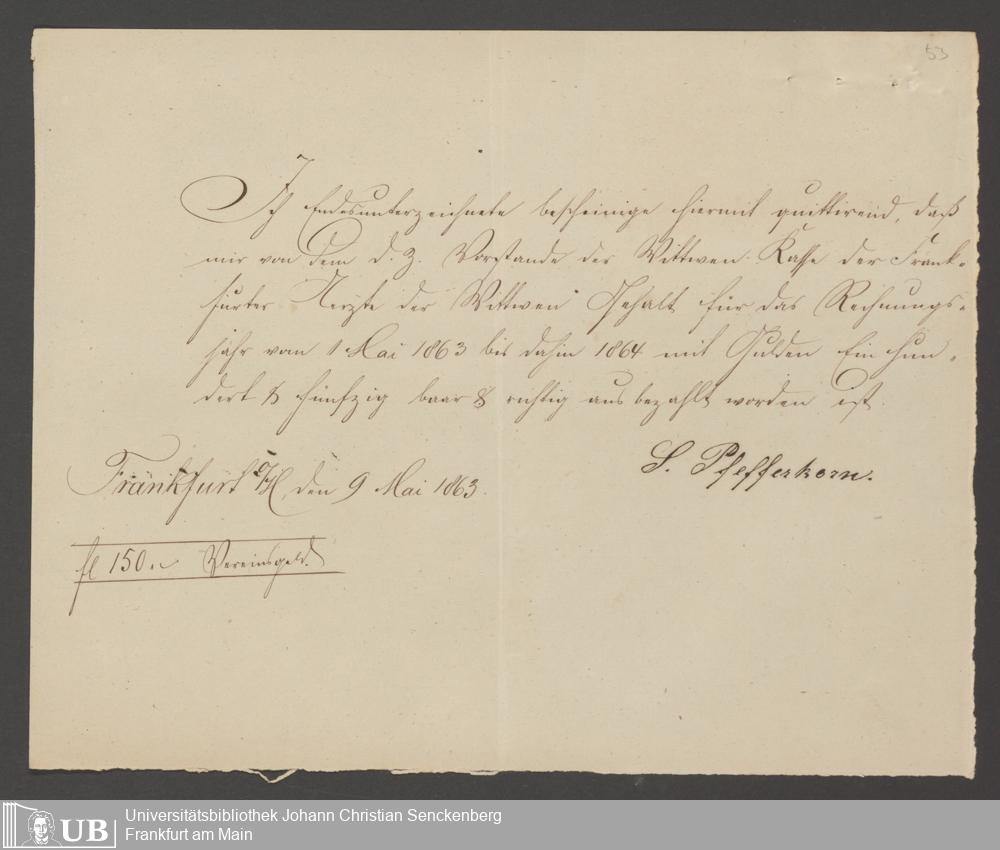 53
Ich Endesunterzeichnete bescheinige hiermit quittirend, daß
mir von dem d. Z. Vorstande der Wittwen-Kasse der Frank-
furter Aerzte der Wittwen Gehalt für das Rechnungs-
jahr vom 1 Mai 1863 bis dahin 1864 mit Gulden Ein hun-
dert & fünfzig baar & richtig ausbezahlt worden ist.
S. Pfefferkorn.
Frankfurt a/M, den 9 Mai 1863.
fl 150 „ Vereinsgeld.
UB
Universitätsbibliothek Johann Christian Senckenberg
Frankfurt am Main